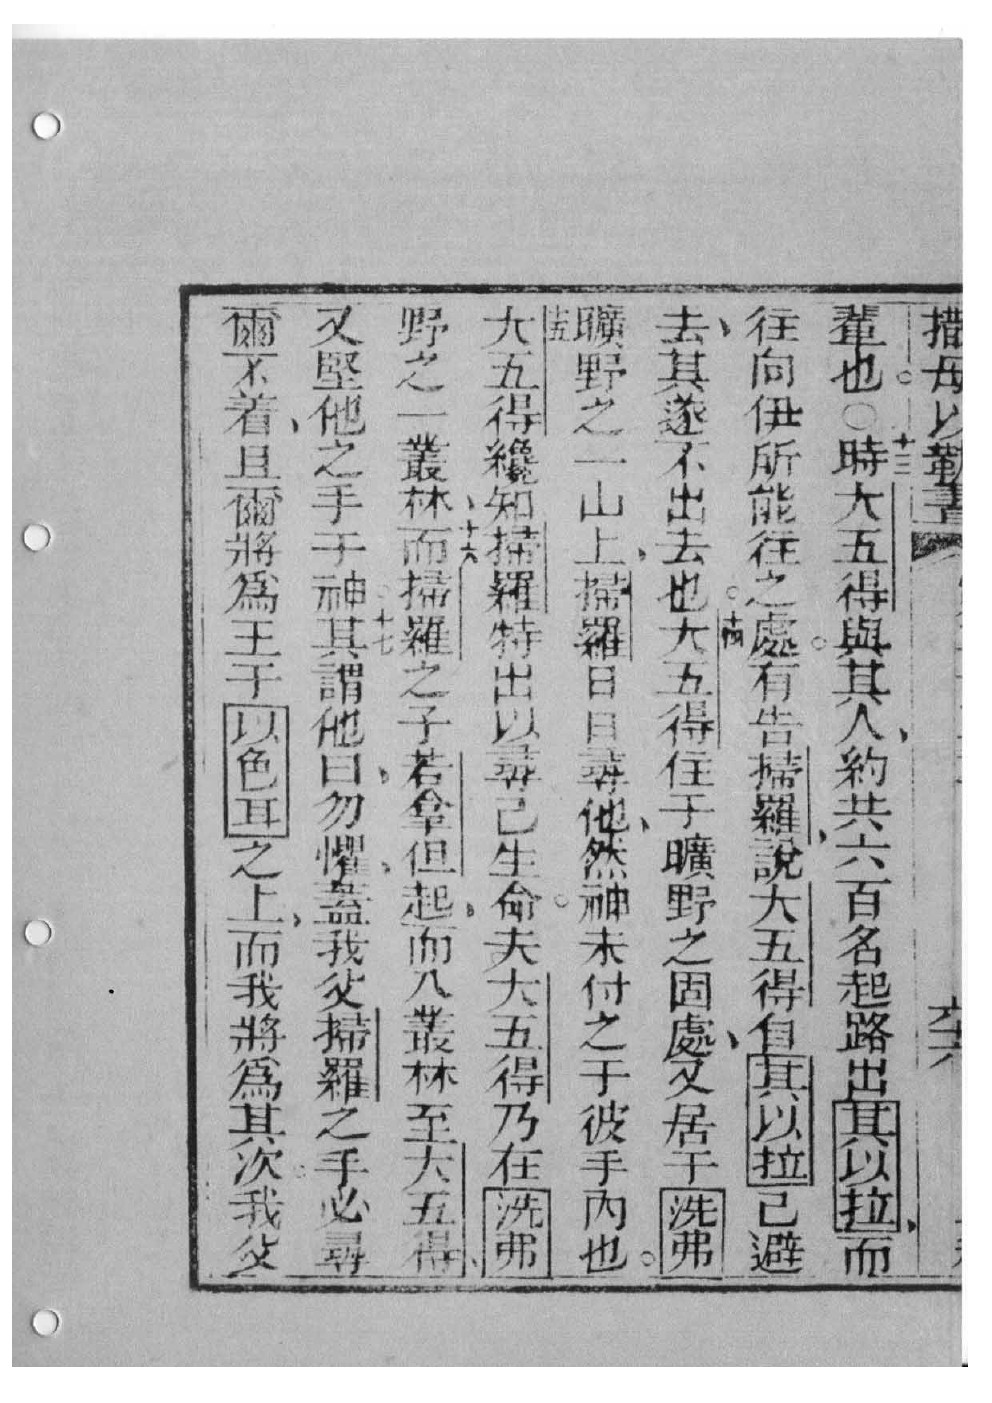 撒母以勒書
輩也。○十三時大五得與其人、約共六百名起路出其以拉、而
往向伊所能往之處。有告掃羅、說大五得自其以拉已避
去、其遂不出去也。十四大五得住于曠野之固處、又居于洗弗
曠野之一山上、掃羅日日尋他、然神未付之于彼手內也。
十五大五得纔知掃羅特出以尋己生命。夫大五得乃在洗弗
野之一叢林、十六而掃羅之子若拿但起、而入叢林至大五得、
又堅他之手于神。十七其謂他曰、勿懼、蓋我父掃羅之手必尋
爾不着、且爾將為王于以色耳之上、而我將為其次。我父